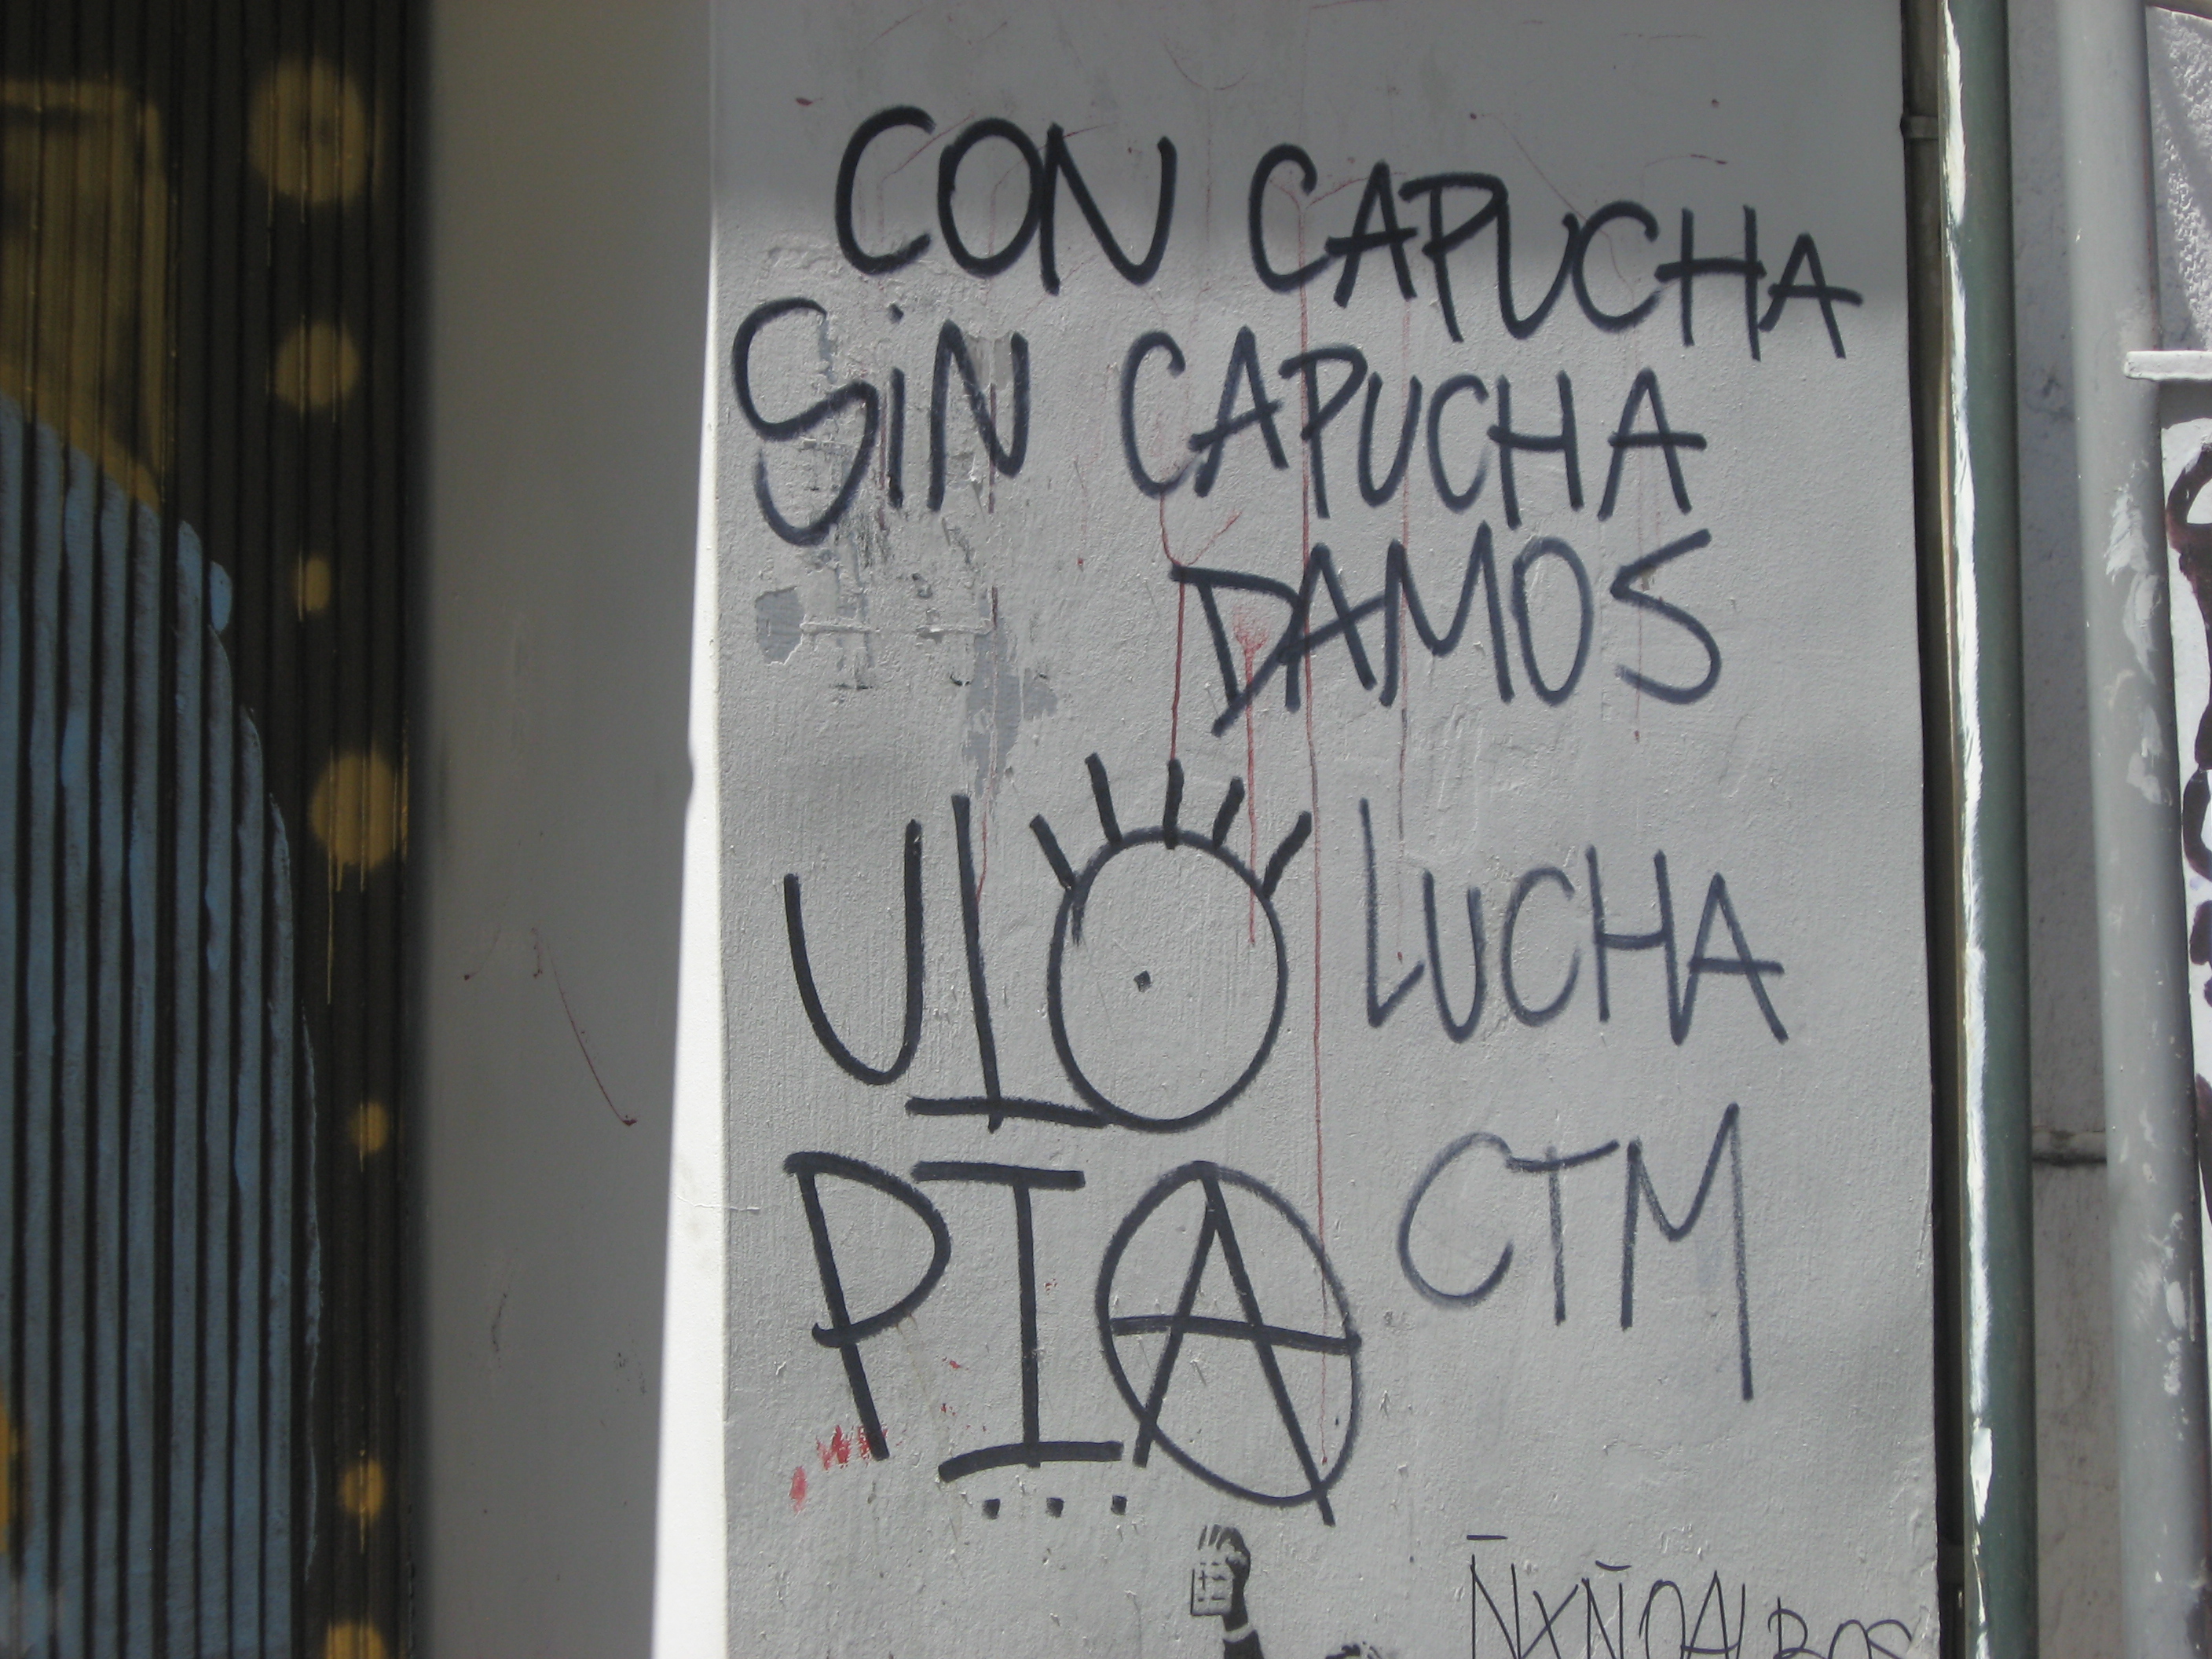 CON CAPUCHA
SiN CAPUCHA
DAMOS
LUCHA
CTM
UIO
PIA
...